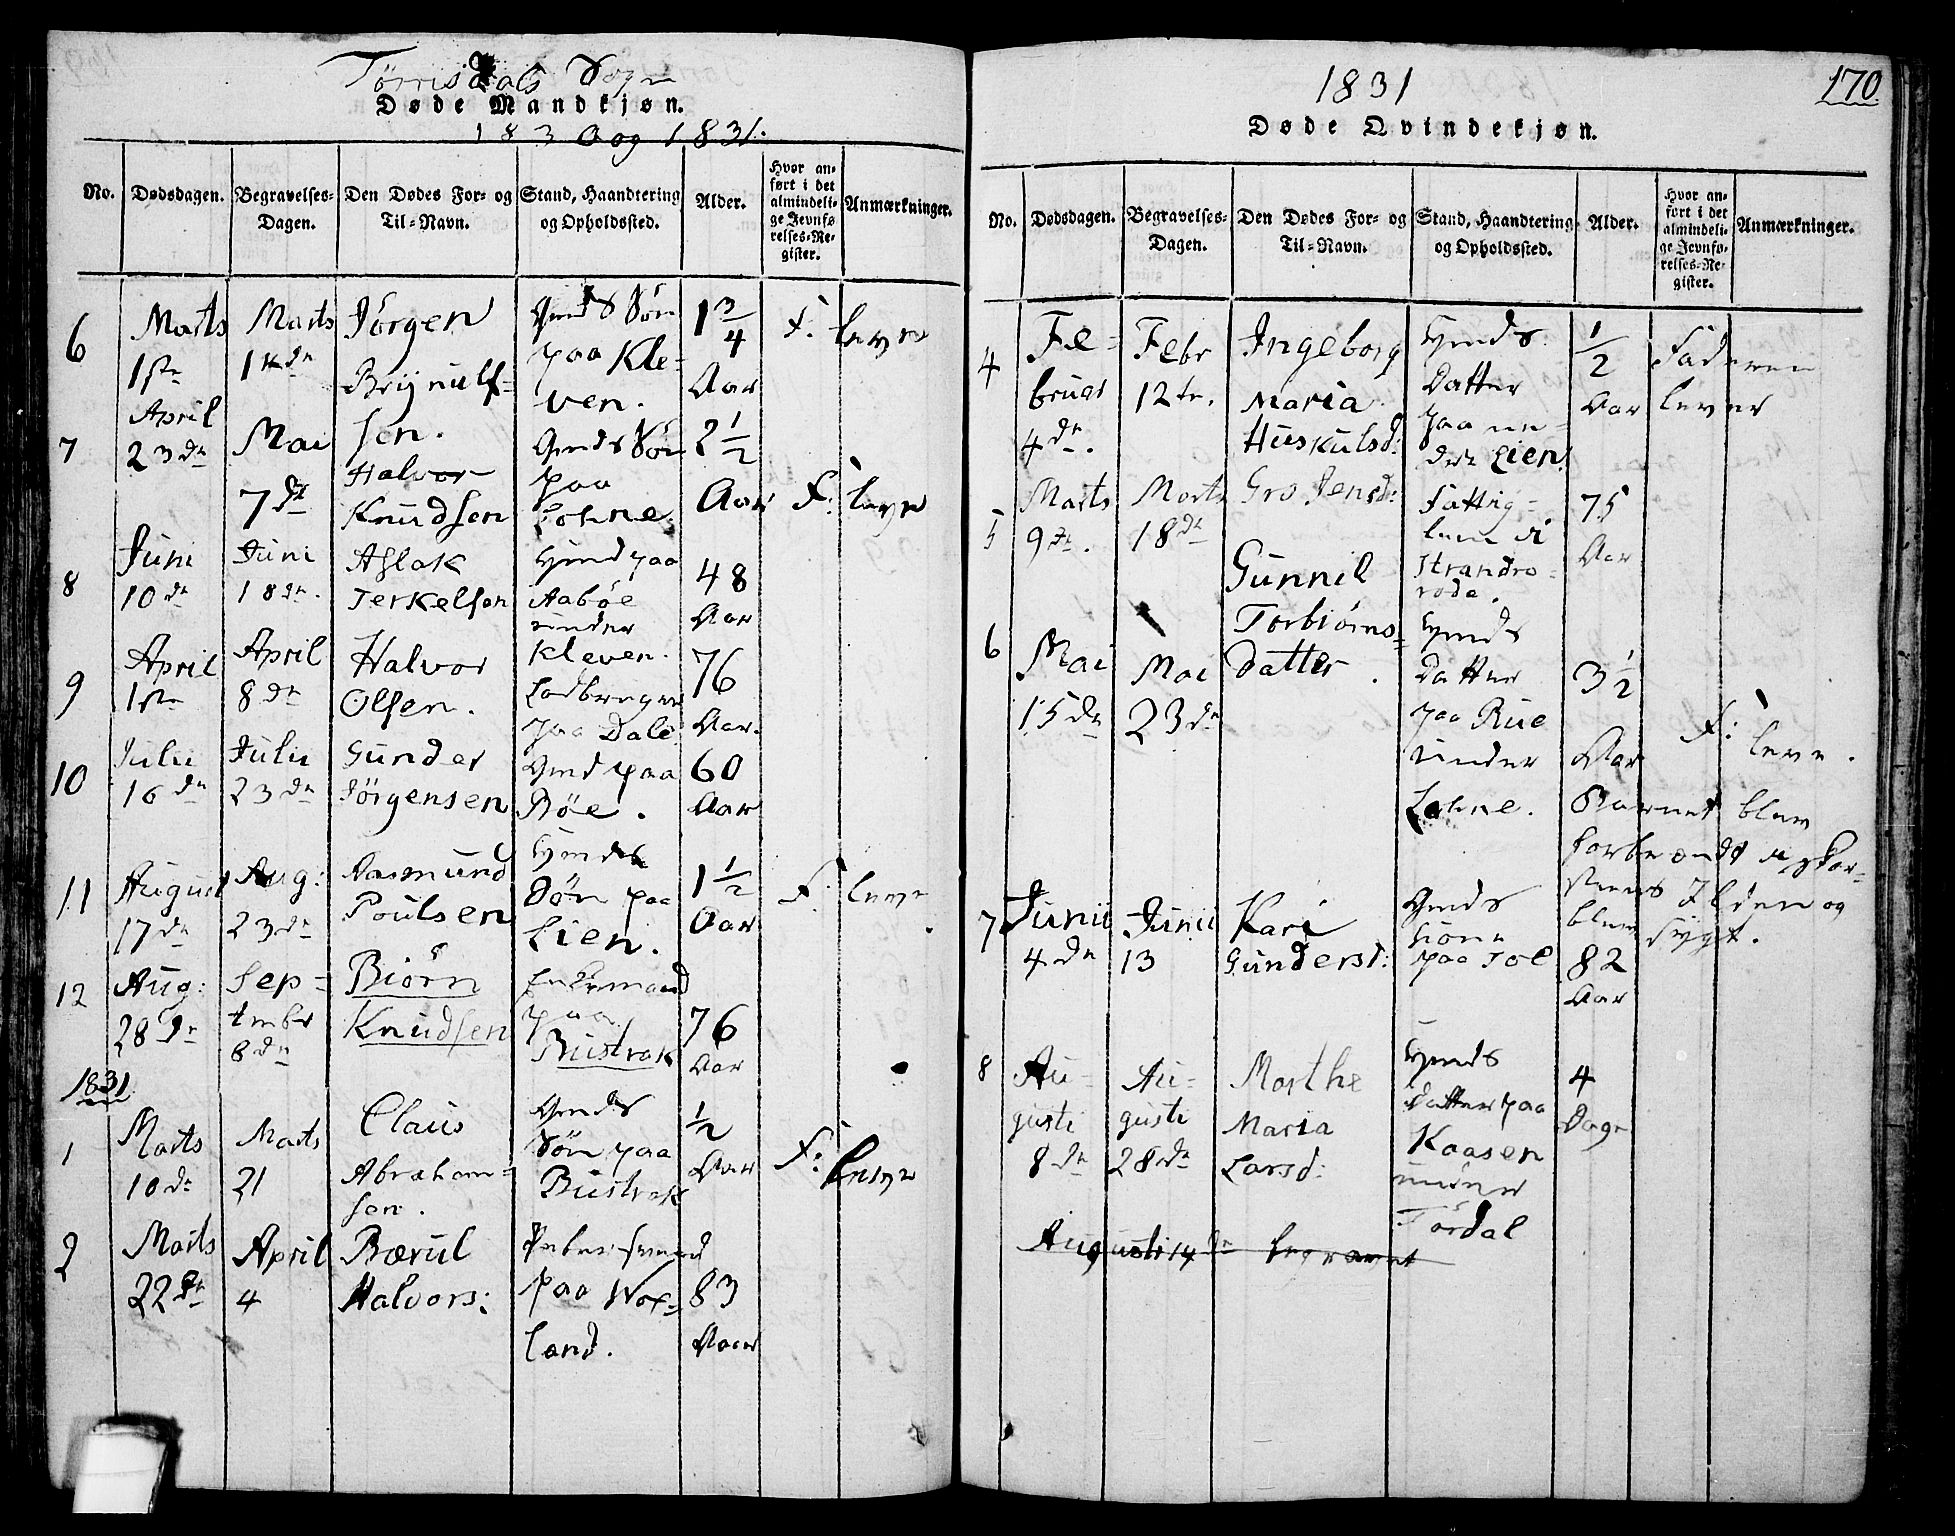 Tørrisdals Sogn
Døde Mandkjøn.
1830 og 1831.
No.
Dødsdagen.
Begravelses-
Dagen.
Den Dødes For- og
Til-Navn.
Stand, Haandtering
og Opholdssted.
Alder.
Hvor an-
ført i det
almindeli-
ge Jevnfø
relses-Re-
gister.
Anmærkninger.
6
Marts
1ste
Marts
Jörgen
Brijnulf-
sen.
Gmds Sön
paa Kle-
ven.
1 3/4
Aar
F:
7
April
23de
Mai
7de
Halvor
Knudsen
Gmds Sön
paa
Lohne.
2 1/2
Aar
F:
8
Juni
10de
Juni
18de.
Aslak
Terkelsen
Gmd paa
Aaböe
under
Kleven.
48
Aar
9
April
1ste
April
8de
Halvor
Olsen.
paa Dale
76
Aar.
10
Julii
16de
Julii
23de
Gunder
Jörgensen
Gmd paa
Böe.
60
Aar
11
August
17de
Aug:
23de
Aasmund
Poulsen
Gmds
Sön paa
Lien.
1 1/2
Aar
F:
12
Aug:
28de
Sep-
tmbr
8de
Biörn
Knudsen
Enkemand
paa
Bustrak
76
Aar
1831
1
Marts
10de
Marts
21
Claus
Abraham-
sen.
Gmds
Sön paa
Bustrak
1/2
Aar
F:
2
Marts
22de
April
4
Bærul
Halvors:
paa
land.
83
Aar
1831
170
Døde Qvindekjøn.
No.
Dødsdagen.
Begravelses-
Dagen.
Den Dødes For- og
Til-Navn.
Stand, Haandtering
og Opholdssted.
Alder.
Hvor an-
ført i det
almindeli-
ge Jevnfø-
relses-Re-
gister.
Anmærkninger.
4
Fe-
bruar
4de.
Febr
12te.
Ingeborg
Maria
Huskulsd:
Gmds
Datter
paa un-
der Lien.
1/2
Aar
Faderen
lever
5
Marts
9de.
Marts
18de
Gro Jensd:
Fattig-
lem i
Strandro-
rode.
75
Aar
6
Mai
15de
Mai
23de
Gunnil
Torbiörns-
datter.
Gmds
Datter
paa Rue
under
Lohne.
3 1/2
Aar
F:
Barnet blev
forbrændt
Ilden og
blev sygt.
7
Junii
4de
Junii
13
Kari
Gundersd:
Gmds
kone
paa Toe
82
Aar
8
Au-
gusti
8de
Au-
gusti
28de
Marthe
Maria
Larsd:
Gmds
datter paa
Kaasen
under
Tördal
4
Dage
Augusti 14de begravet